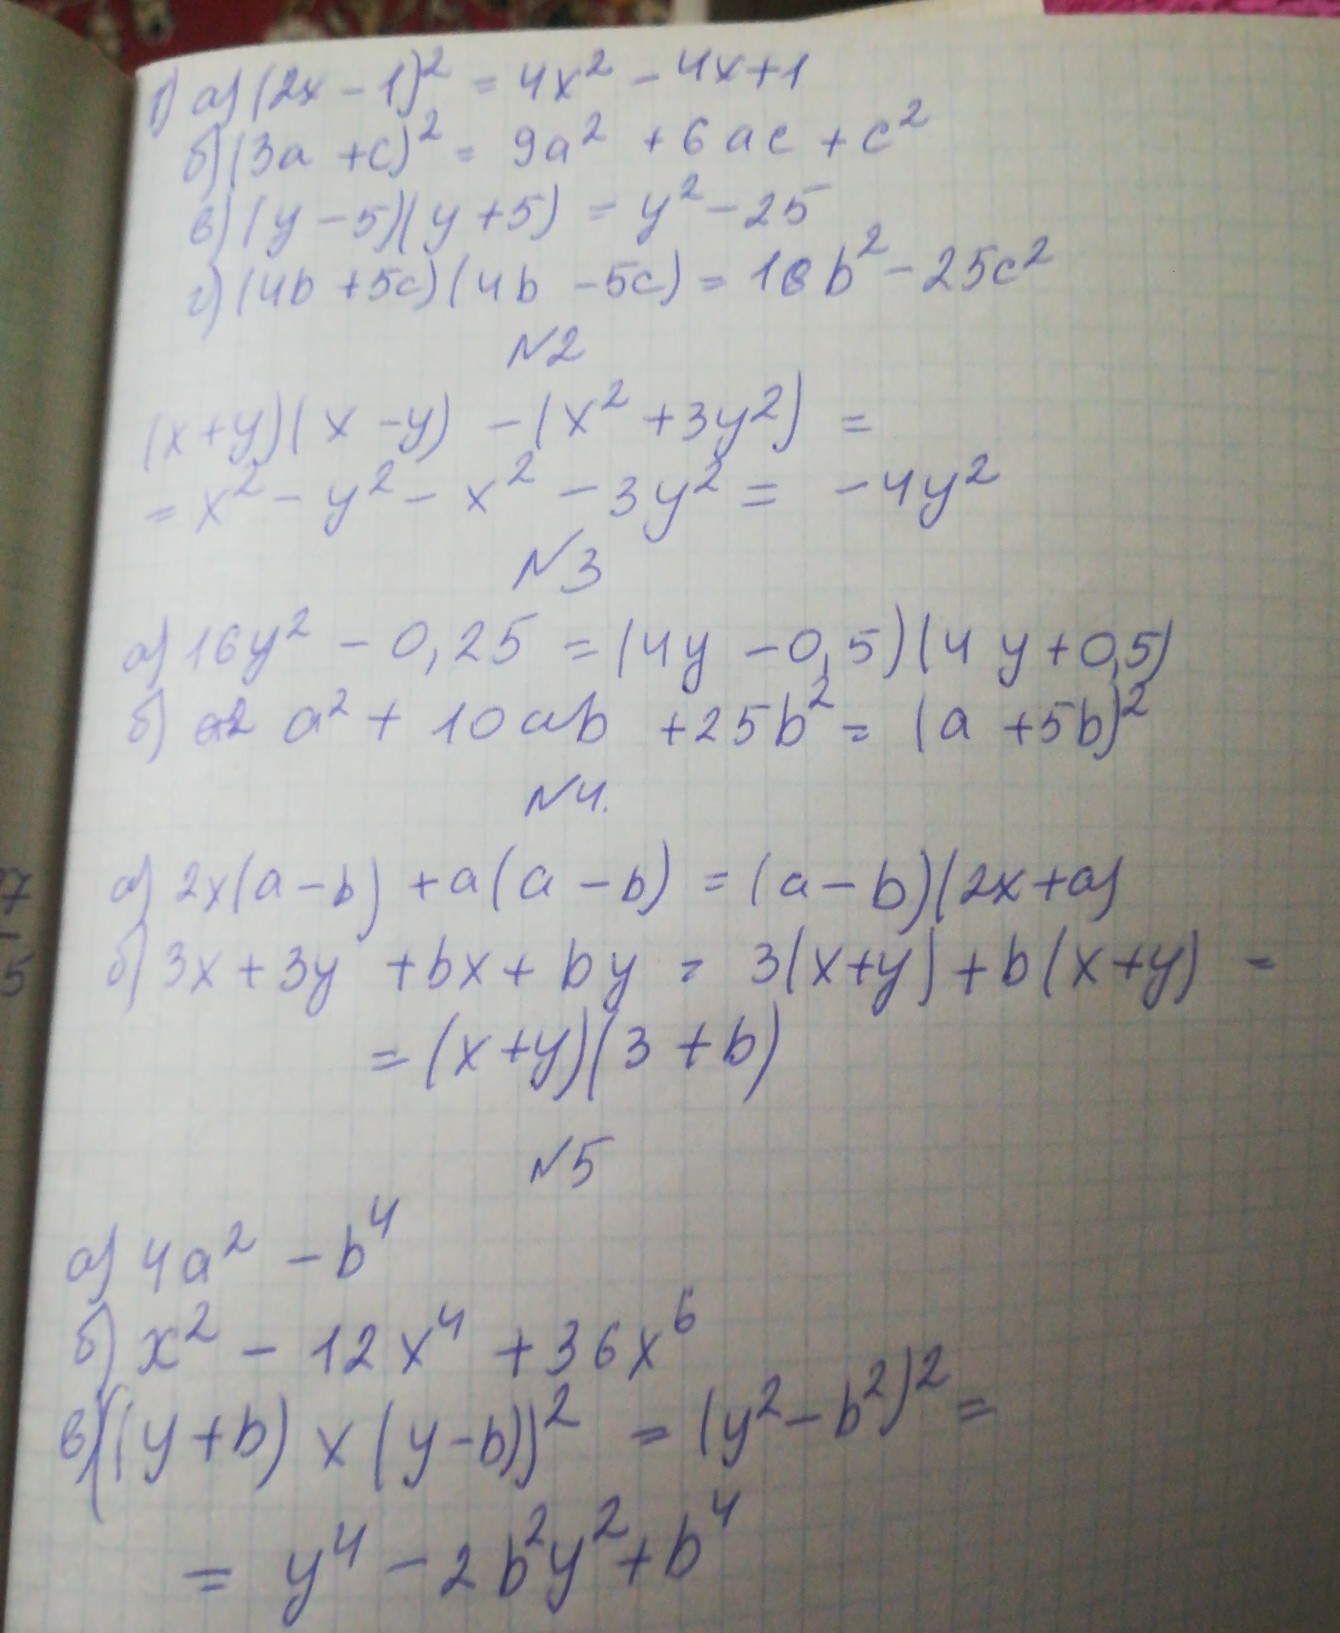 1) а) (2x - 1)² = 4x² - 4x + 1
б) (3a + c)² = 9a² + 6ac + c²
в) (y - 5)(y + 5) = y² - 25
г) (4b + 5c)(4b - 5c) = 16b² - 25c²
№2
(x + y)(x - y) - (x² + 3y²) =
= x² - y² - x² - 3y² = -4y²
№3
а) 16y² - 0,25 = (4y - 0,5)(4y + 0,5)
б) a² + 10ab + 25b² = (a + 5b)²
№4.
а) 2x(a - b) + a(a - b) = (a - b)(2x + a)
б) 3x + 3y + bx + by = 3(x + y) + b(x + y) =
= (x + y)(3 + b)
№5
а) 4a² - b⁴
б) x² - 12x⁴ + 36x⁶
в) ((y + b) x (y - b))² = (y² - b²)² =
= y⁴ - 2b²y² + b⁴